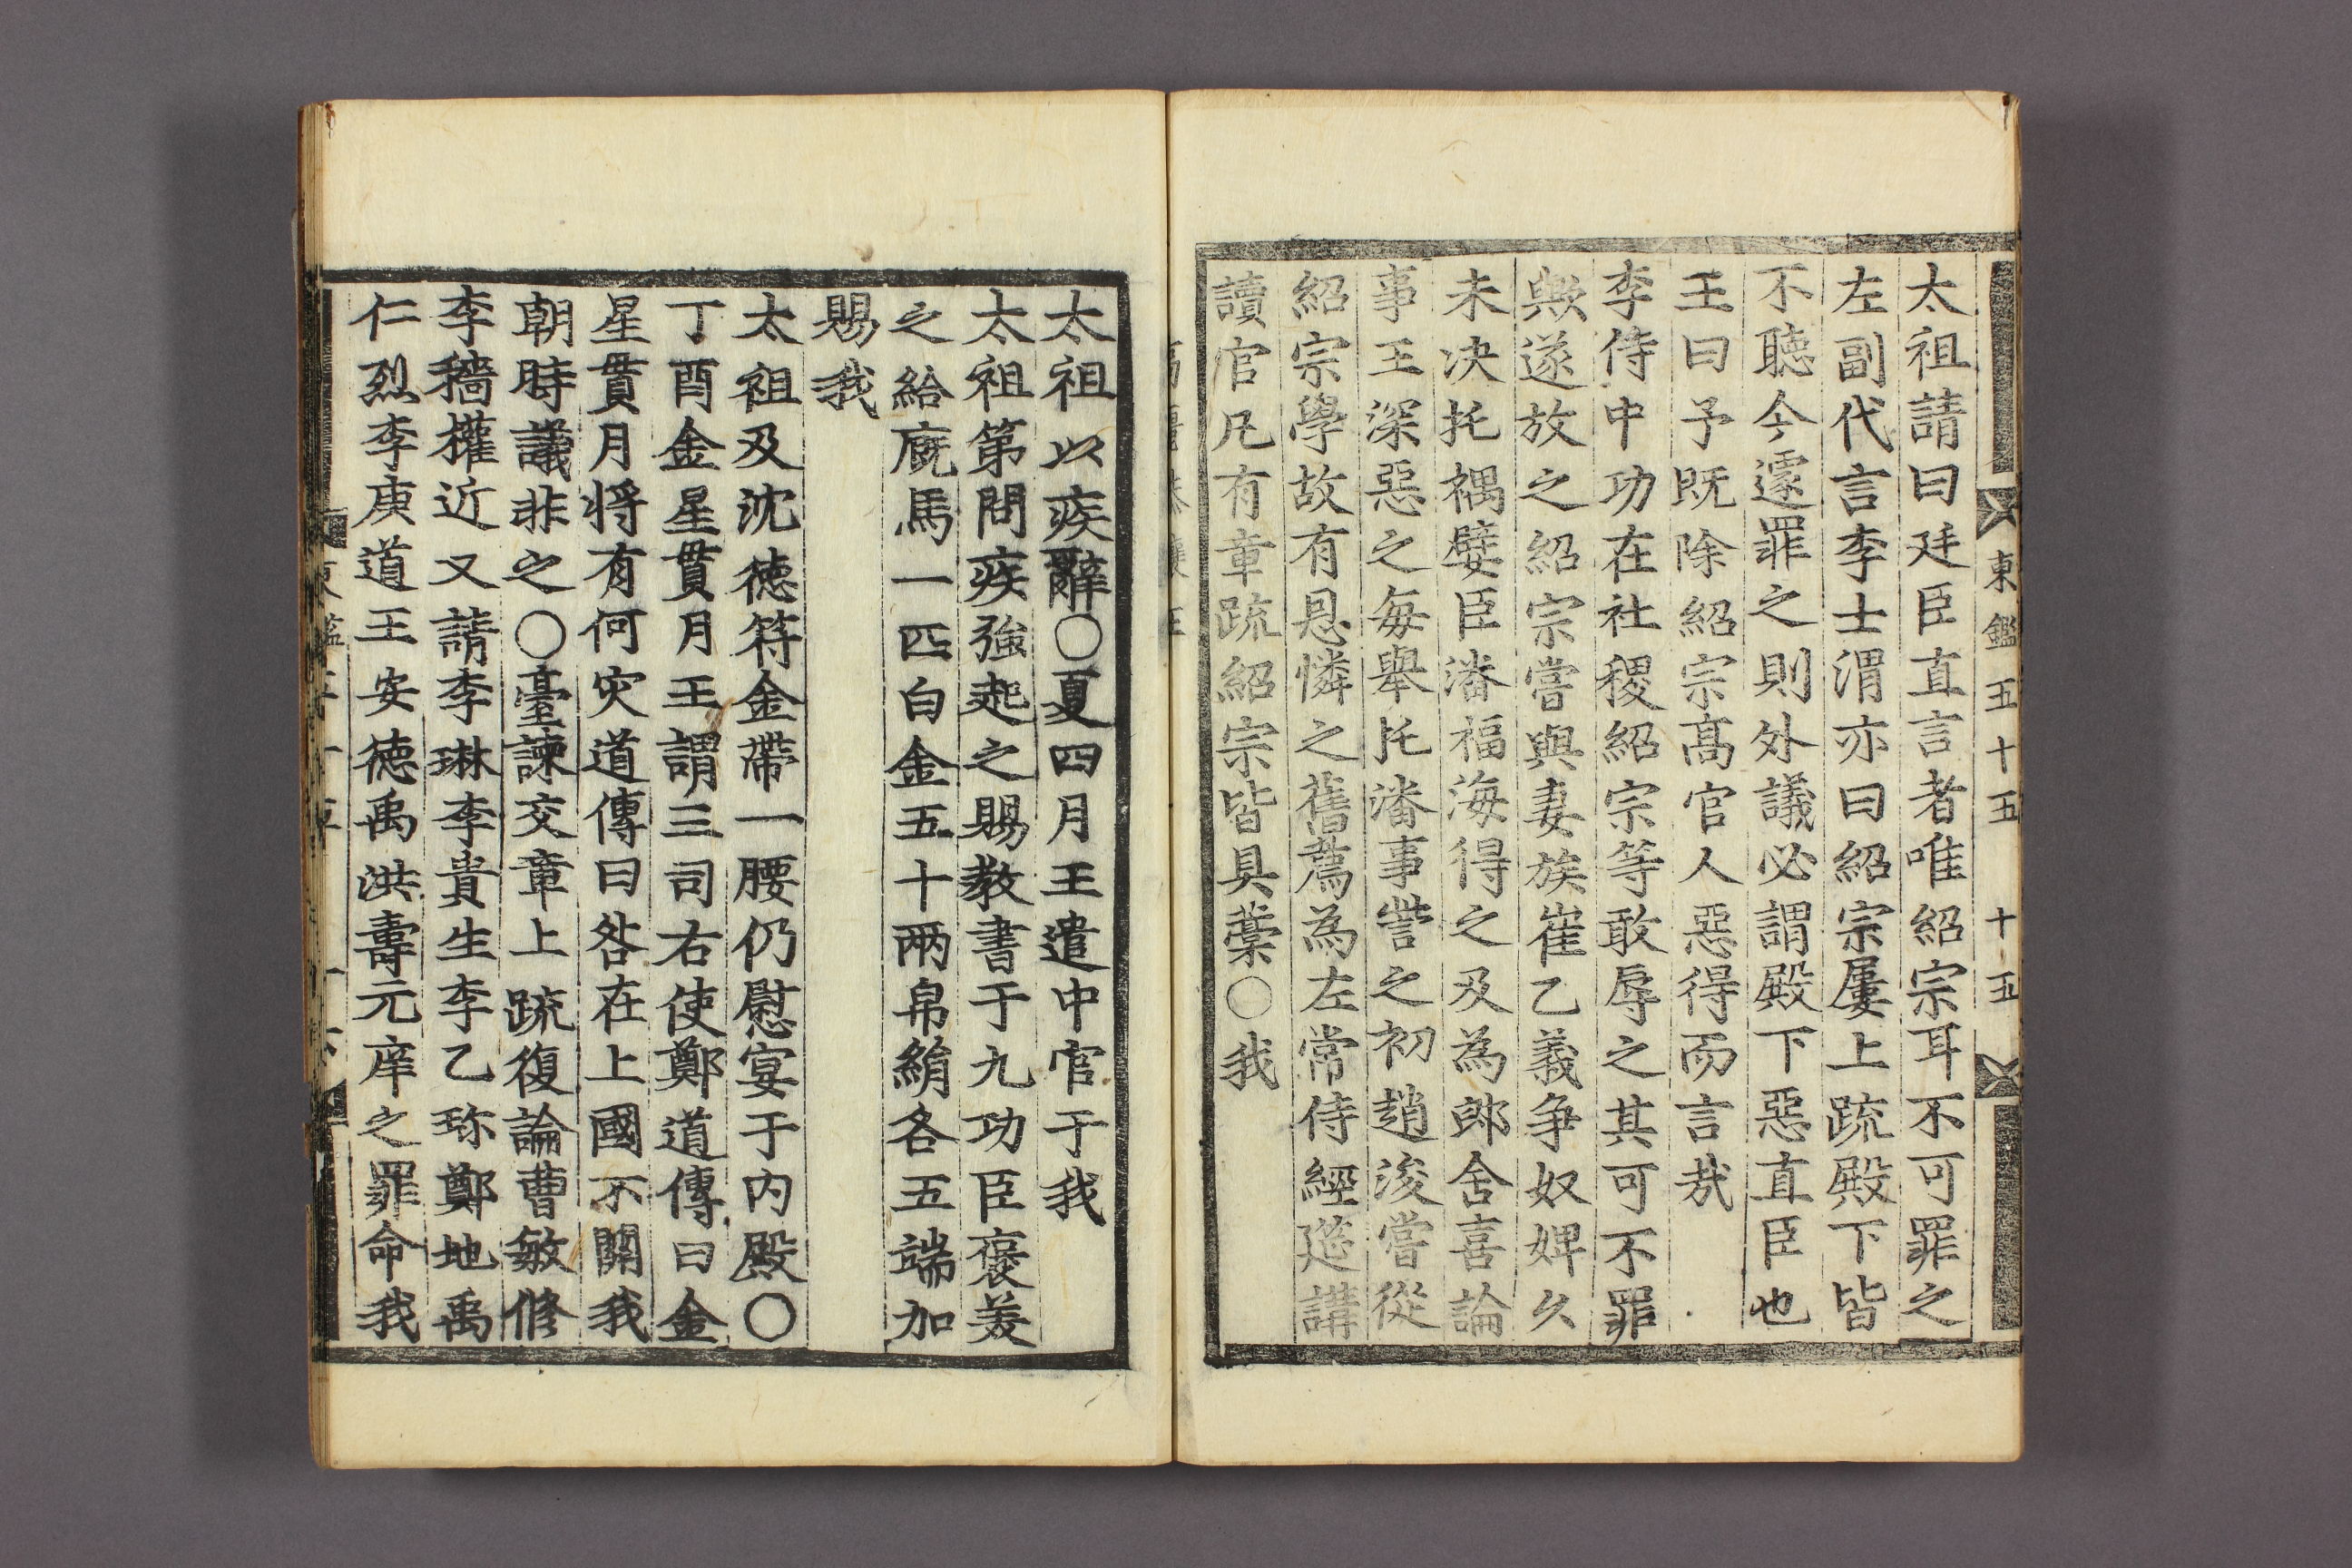 東鑑五十五 十五
太祖請曰廷臣直言者唯紹宗耳不可罪之
左副代言李士渭亦曰紹宗屢上疏殿下皆
不聽今遽罪之則外議必謂殿下惡直臣也
王曰予既除紹宗高官人惡得而言哉
李侍中功在社稷紹宗等敢辱之其可不罪
歟遂放之紹宗嘗與妻族崔乙義爭奴婢久
未决托禑嬖臣潘福海得之及為郎舍喜論
事王深惡之每舉托潘事訾之初趙浚嘗從
紹宗學故有恩憐之舊薦為左常侍經筵講
讀官凡有章疏紹宗皆具藁○我
太祖以疾辭○夏四月王遣中官于我
太祖第問疾強起之賜敎書于九功臣褒美
之給廐馬一匹白金五十兩帛絹各五端加
賜我
太祖及沈德符金帶一腰仍慰宴于内殿○
丁酉金星貫月王謂三司右使鄭道傳曰金
星貫月將有何灾道傳曰咎在上國不關我
朝時議非之○臺諫交章上疏復論曹敏修
李穡權近又請李琳李貴生李乙珎鄭地禹
仁烈李庚道王安德禹洪壽元庠之罪命我